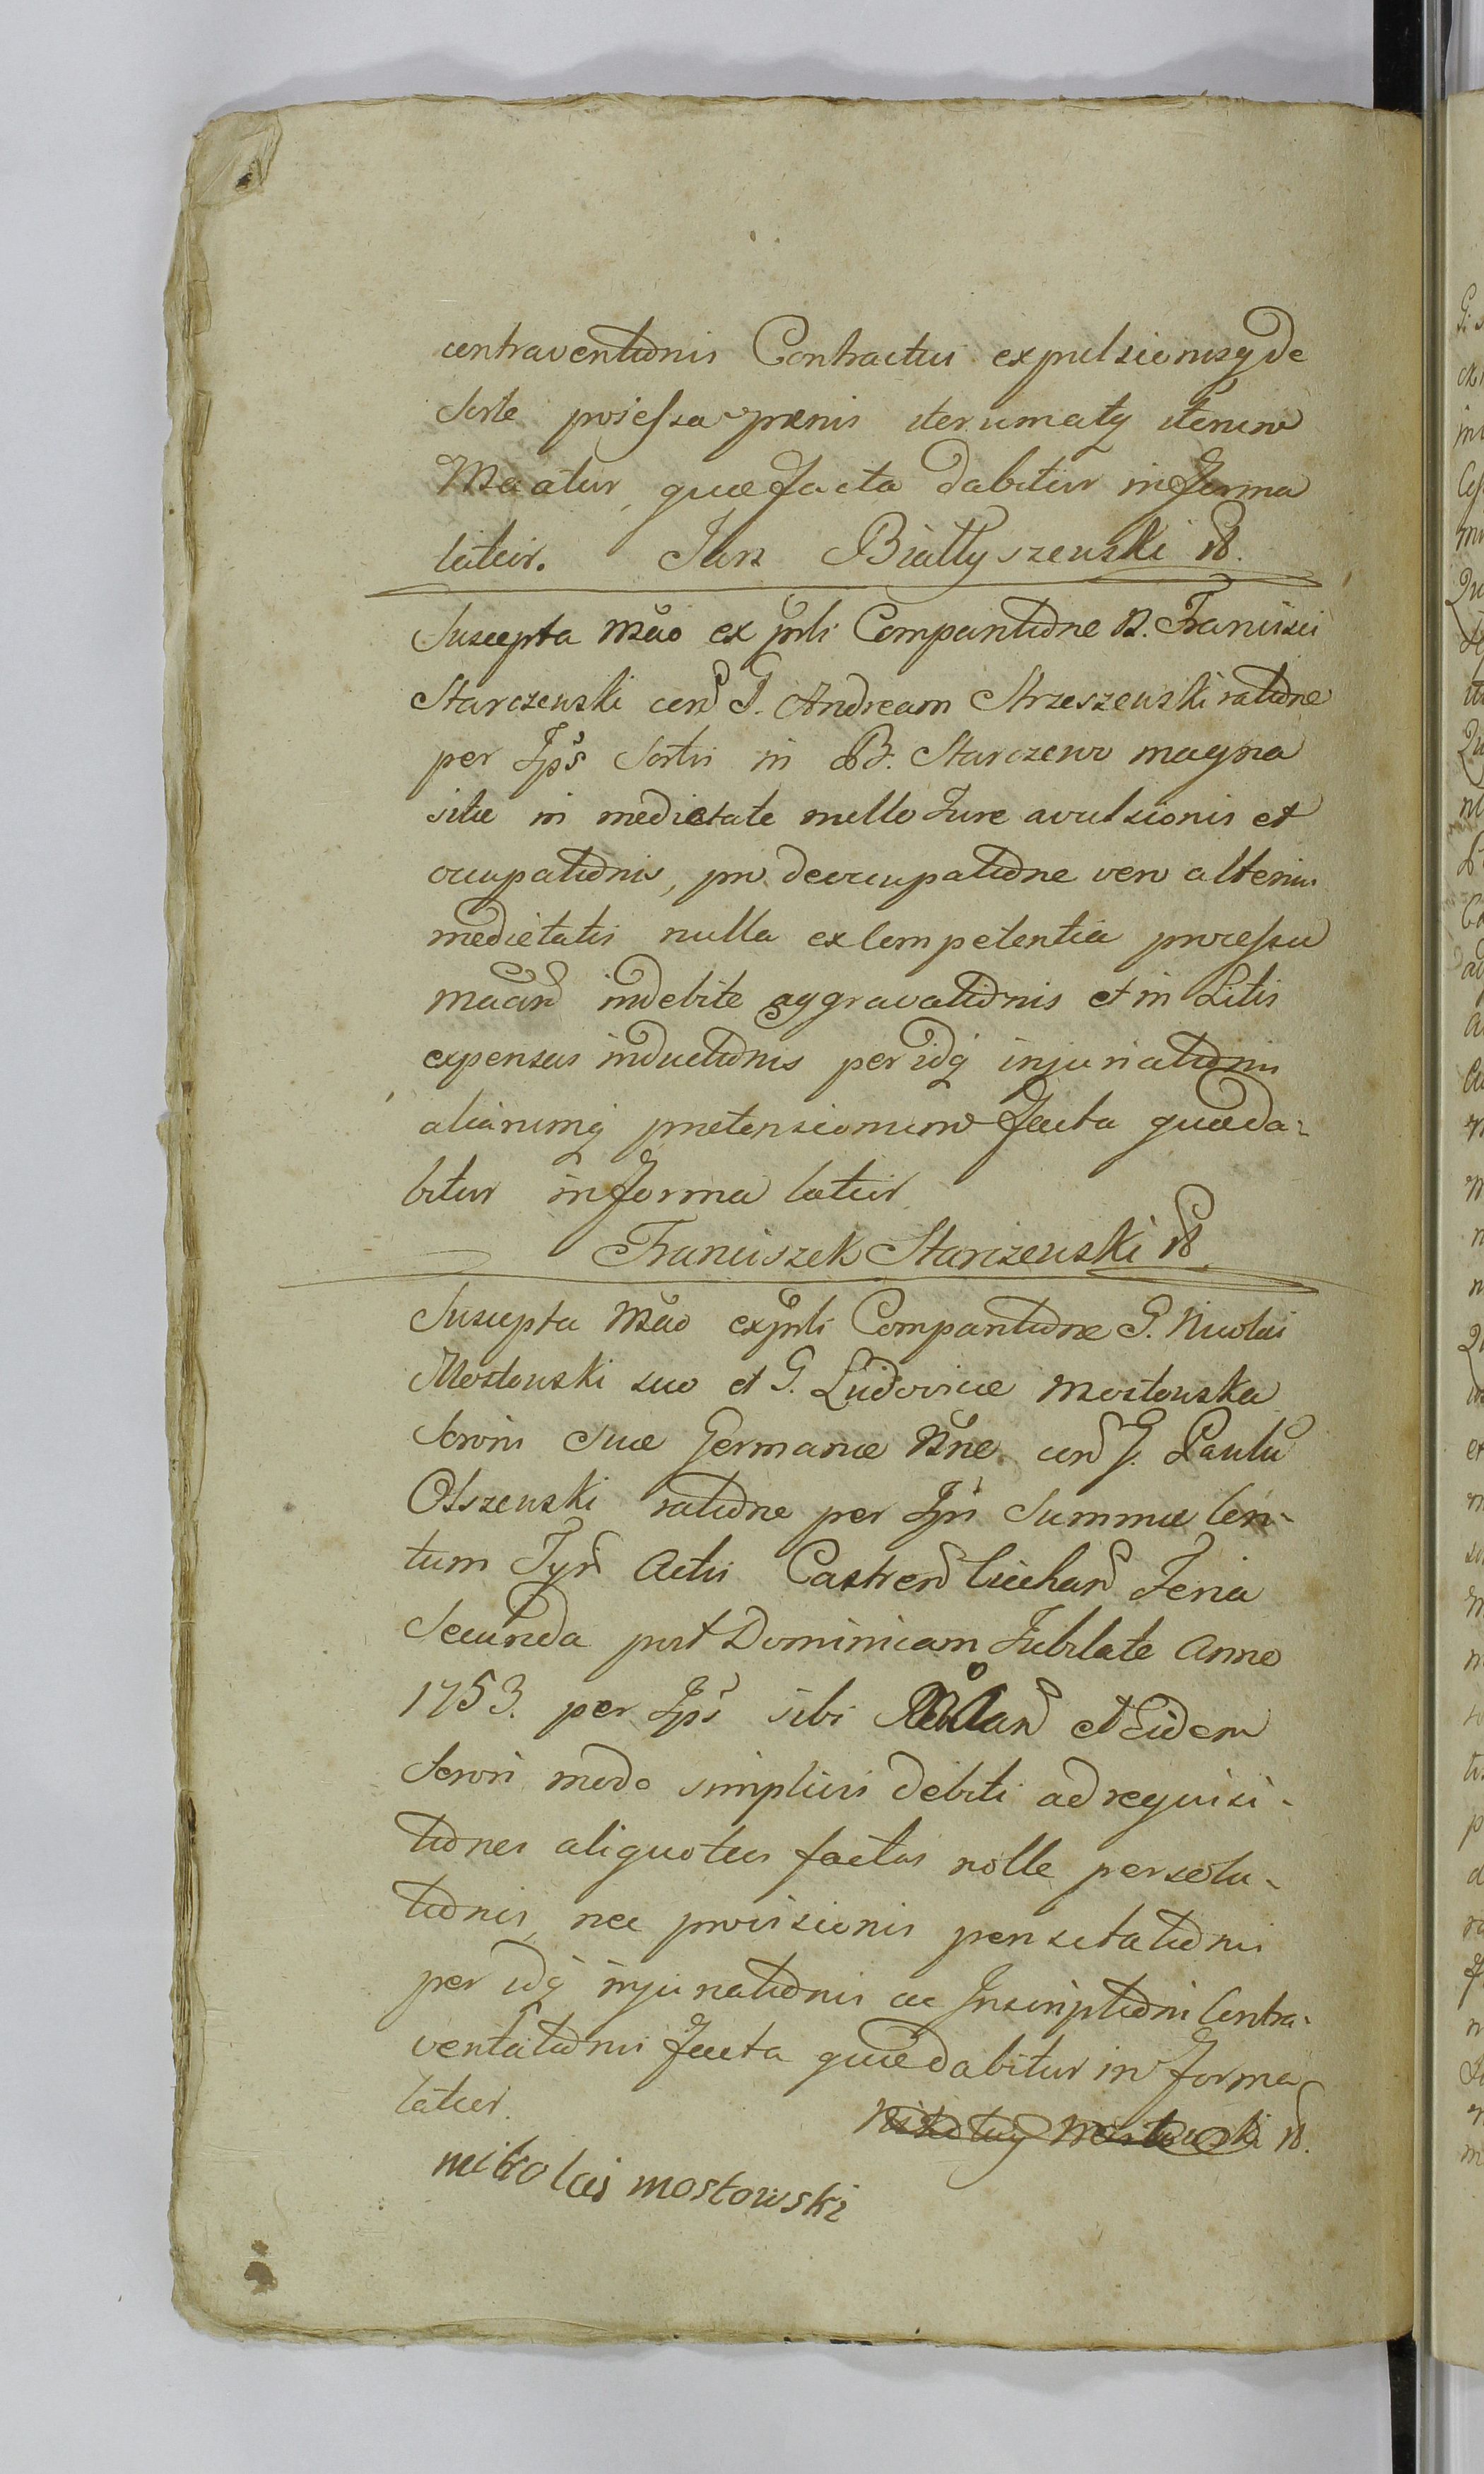 contraventionis Contractus expulsionisq de
sorte possessa pænis iterumatq iterum
Maatur, quæ facta dabitur in forma
latiur. Jan Białłyszewski
Suscepta Mäo ex prsli Comparitione N. Francisci
Starczewski con G. Andream Strzeszewski ratione
per Ips Sortis in B. Starczewo magna
sitæ in medietate nullo Jure avulsionis et
occupationis, pro deoccupatione vero alterius
medietatis nulla ex Competentia processu
maan indebite aggravationis et in Litis
expensas inductionis per idq injuriationis
aliarumq prætensionum facta quæ da-
bitur in forma latiur
Franciszek Starczewski
Suscepta Mäo ex prsli Comparitione G. Nicolai
Mostowski suo et G. Ludovicæ Mostowska
Sororis suæ Germanæ Nne con G. Paulu
Olszewski ratione per Ips Summæ Cen-
tum Tyn Actis Castren Ciechan Feria
Secunda post Dominicam Jubilate Anno
1753. per Ips sibi et Eidem
Sorori modo simplicis debiti ad requisi-
tiones aliquoties factas nolle persolu-
tionis, nec provisionis pensitationis
per idq injuriationis ac Inscriptioni Contra-
ventationis facta quæ dabitur in forma
latiur. Mikołay Mostowski
mikolai mostowski